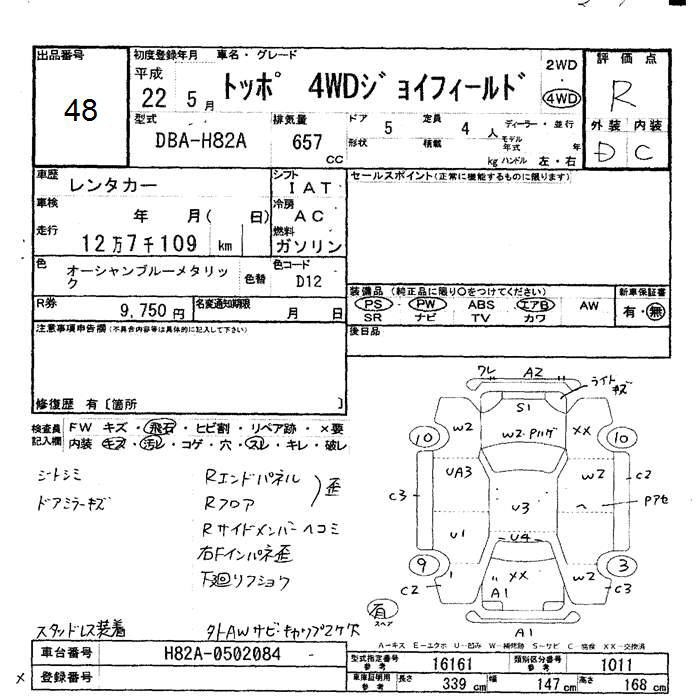 出品番号
48
初度登録年月 車名・グレード
平成
22 5月
トッポ 4WDジョイフィールド
2WD
・
4WD
評価点
R
外装 内装
D C
型式
DBA-H82A
排気量
657
cc
ドア 5 定員 4 人 ディーラー・並行
形状 積載 kg モデル年式 年
ハンドル 左・右
車歴 レンタカー
シフト
I A T
車検 年 月( 日)
冷房
A C
走行
12万7千109 km
燃料
ガソリン
色 オーシャンブルーメタリッ
ク
色替
色コード
D12
R券 9,750円
名変通知期限 月 日
セールスポイント(正常に機能するものに限ります)
装備品(純正品に限り○をつけてください)
PS・PW・ABS・エアB・AW
SR ナビ TV カワ
新車保証書
有・無
後日品
注意事項申告欄(不具合内容等は具体的に記入して下さい)
修復歴 有〔箇所 〕
検査員記入欄
FW キズ・飛石・ヒビ割・リペア跡・×要
内装 キズ・汚レ・コゲ・穴・スレ・キレ・破レ
シートシミ
ドアミラーキズ
Rエンドパネル
Rフロア
歪
Rサイドメンバーヘコミ
右Fインパネ歪
下廻リフショウ
スタッドレス装着
タトAWサビ・キャップ2ケ欠
ワレ A2 ライトキズ
S1
W2 W2・Pハゲ XX
10 10
UA3 W2 C2
C3 Pアセ
U3
U1
U4
9 3
XX W2
C2 A1 C3
有
スペア
A1
A-キズ E-エクボ U-凹み W-補修跡 S-サビ C-腐食 XX-交換済
車台番号 H82A-0502084
登録番号
×
型式指定番号
参考
16161
類別区分番号
参考
1011
車庫証明用
参考
長さ 339 cm 幅 147 cm 高さ 168 cm